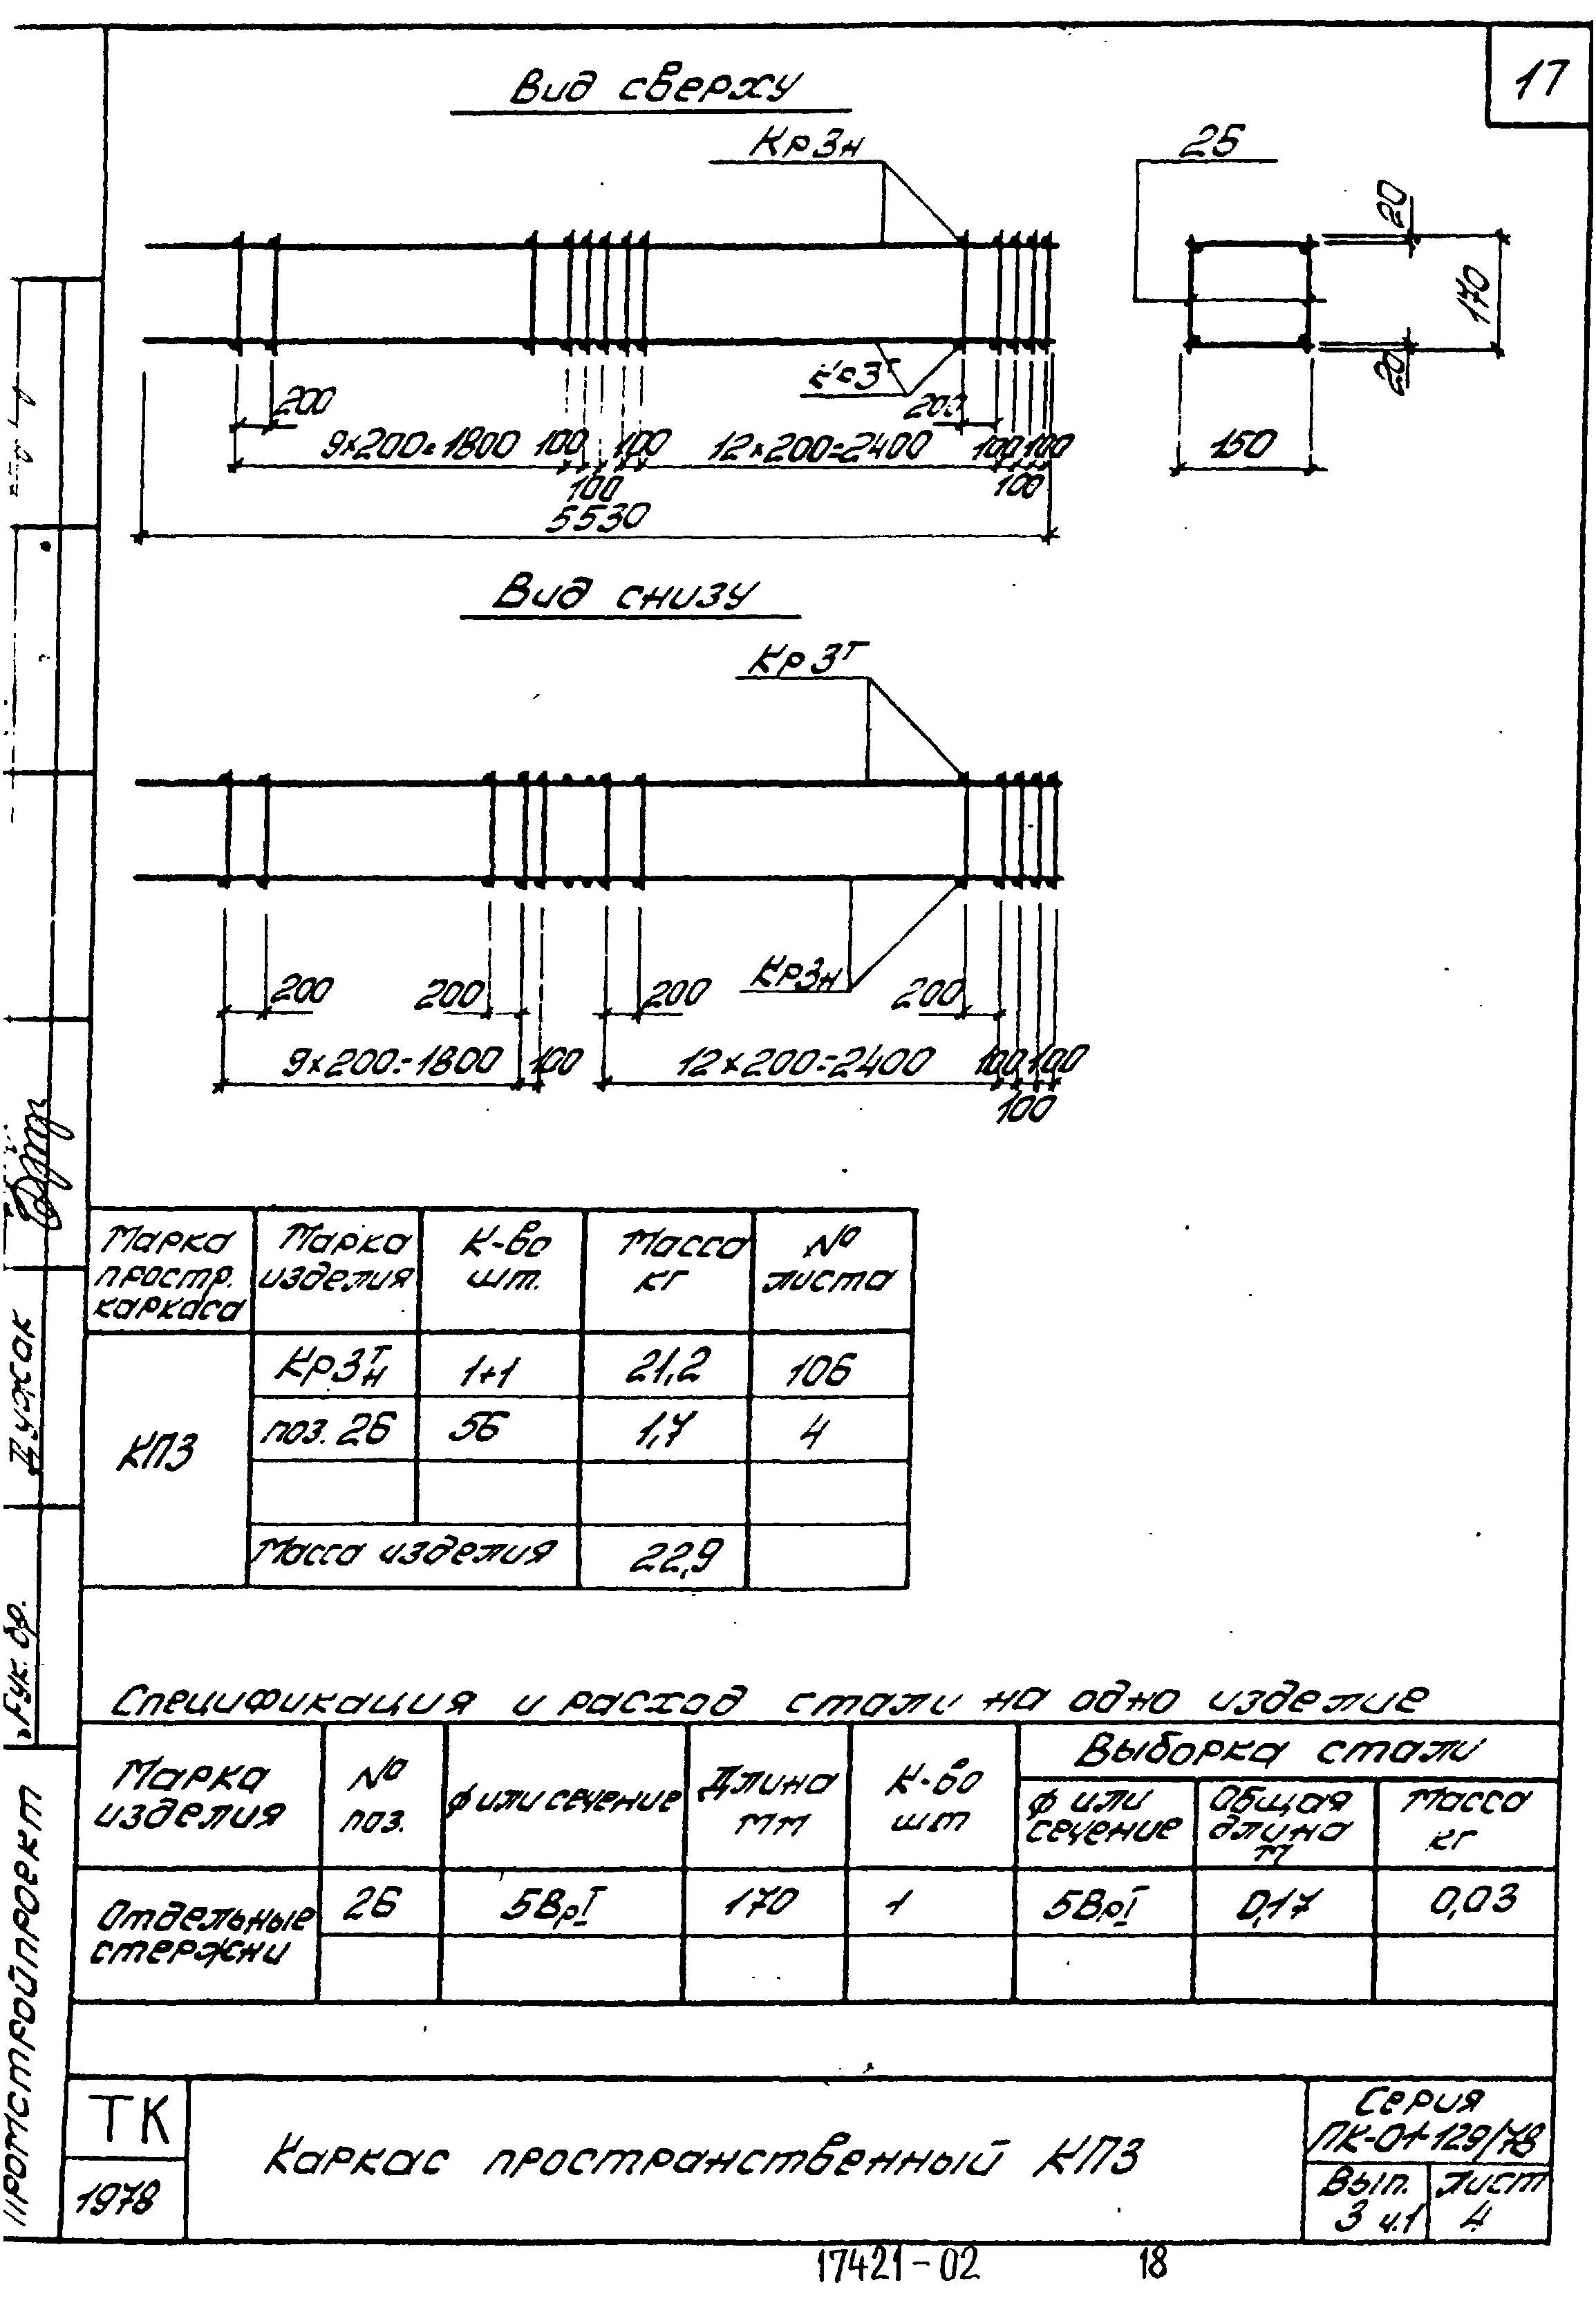 17
Вид сверху
Кр3н
25
20
170
20
150
Кр3т
200
200
9×200=1800
100
100
12×200=2400
100
100
100
100
5530
Вид снизу
Кр3т
Кр3н
200
200
200
200
9×200=1800
100
12×200=2400
100
100
100
Марка простр. каркаса
Марка изделия
К-во шт.
Масса кг
№ листа
КП3
Кр3тн
1+1
21,2
106
поз. 26
56
1,7
4
Масса изделия
22,9
Спецификация и расход стали на одно изделие
Марка изделия
№ поз.
ф или сечение
Длина мм
К-во шт
Выборка стали
ф или сечение
Общая длина м
Масса кг
Отдельные стержни
26
5ВрI
170
1
5ВрI
0,17
0,03
Рук. бр.
Дужак
Промстройпроект
ТК
1978
Каркас пространственный КП3
Серия
ПК-01-129/78
Вып.
3 ч.1
Лист
4
17421-02
18